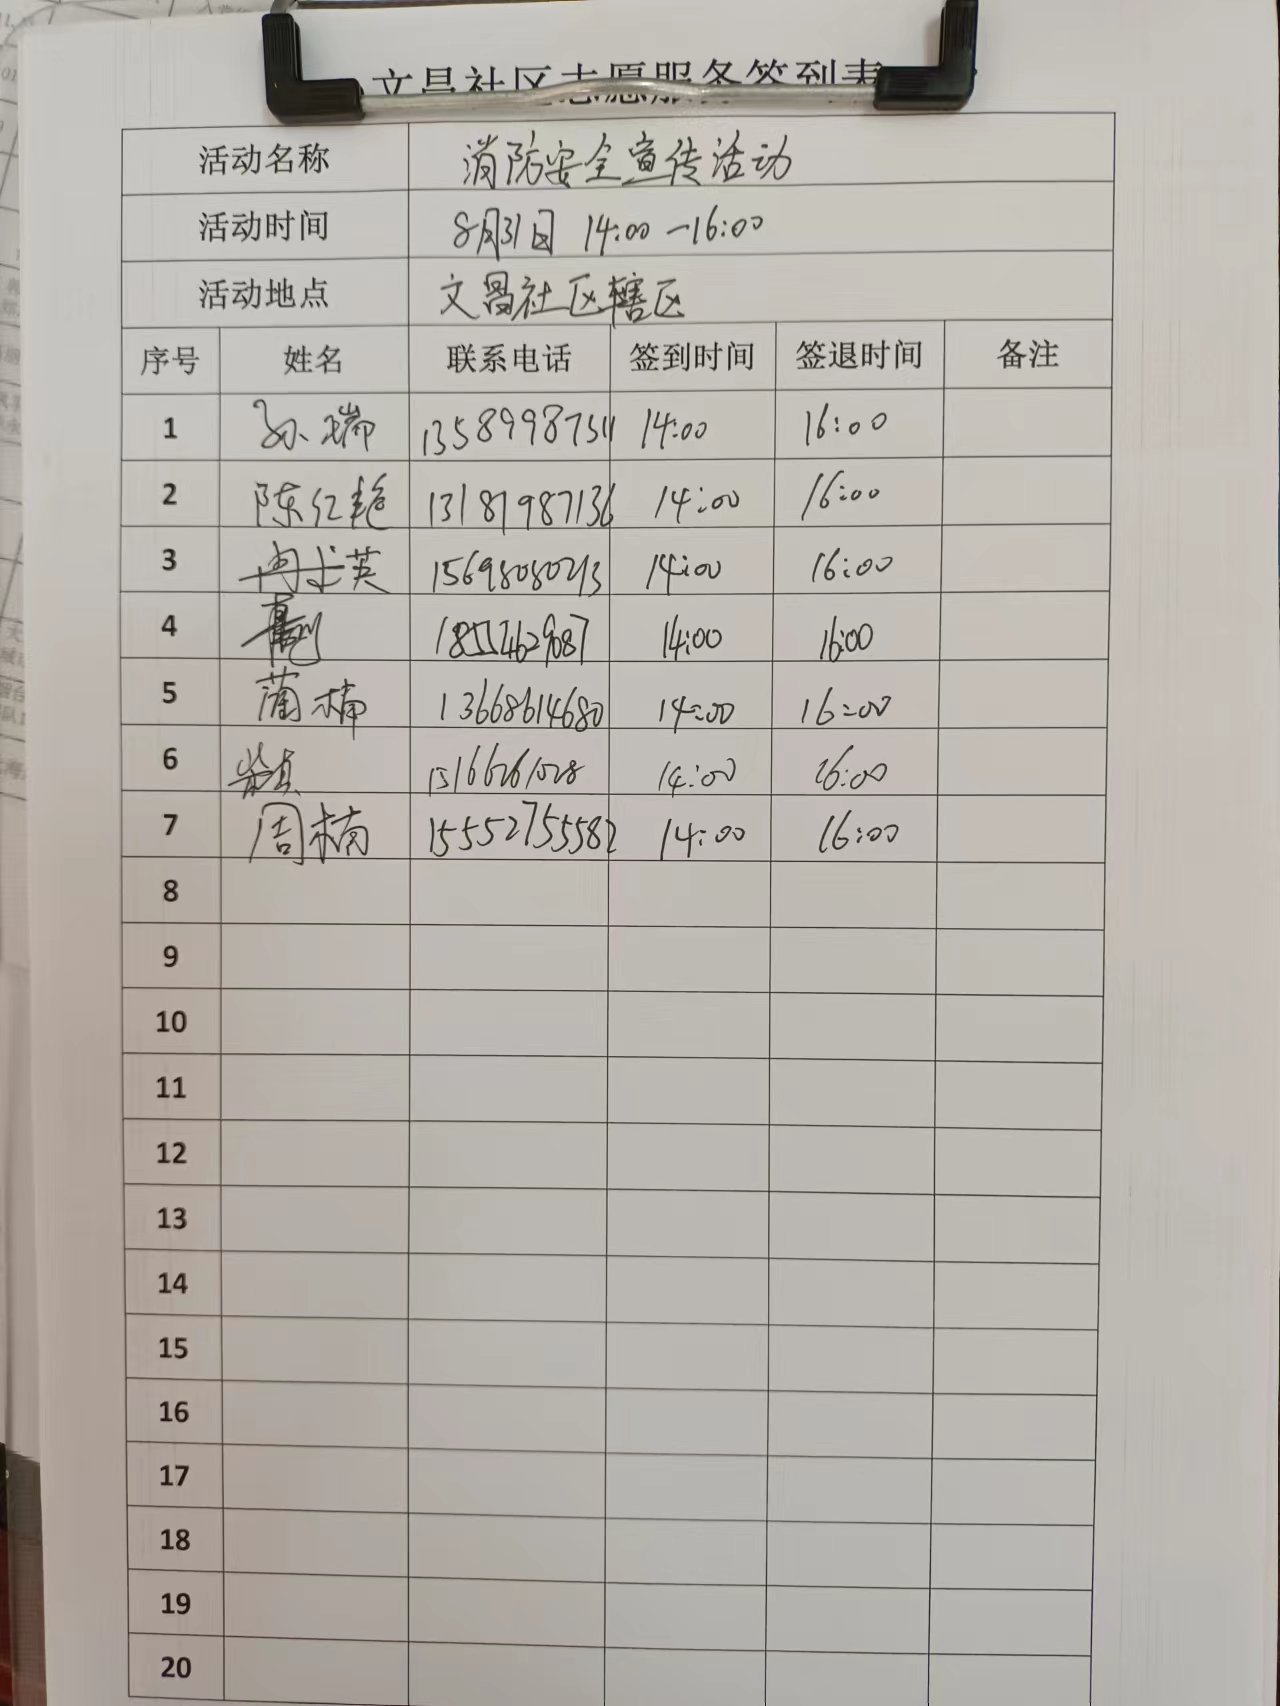 文昌社区志愿服务签到表
活动名称 消防安全宣传活动
活动时间 8月31日 14:00-16:00
活动地点 文昌社区辖区
序号 姓名 联系电话 签到时间 签退时间 备注
1 孙瑞 13589987511 14:00 16:00
2 陈红艳 13181987136 14:00 16:00
3 冉术英 15698080213 14:00 16:00
4 14:00 16:00
5 蔺楠 13668614680 14:00 16:00
6 14:00 16:00
7 周楠 15552755582 14:00 16:00
8
9
10
11
12
13
14
15
16
17
18
19
20